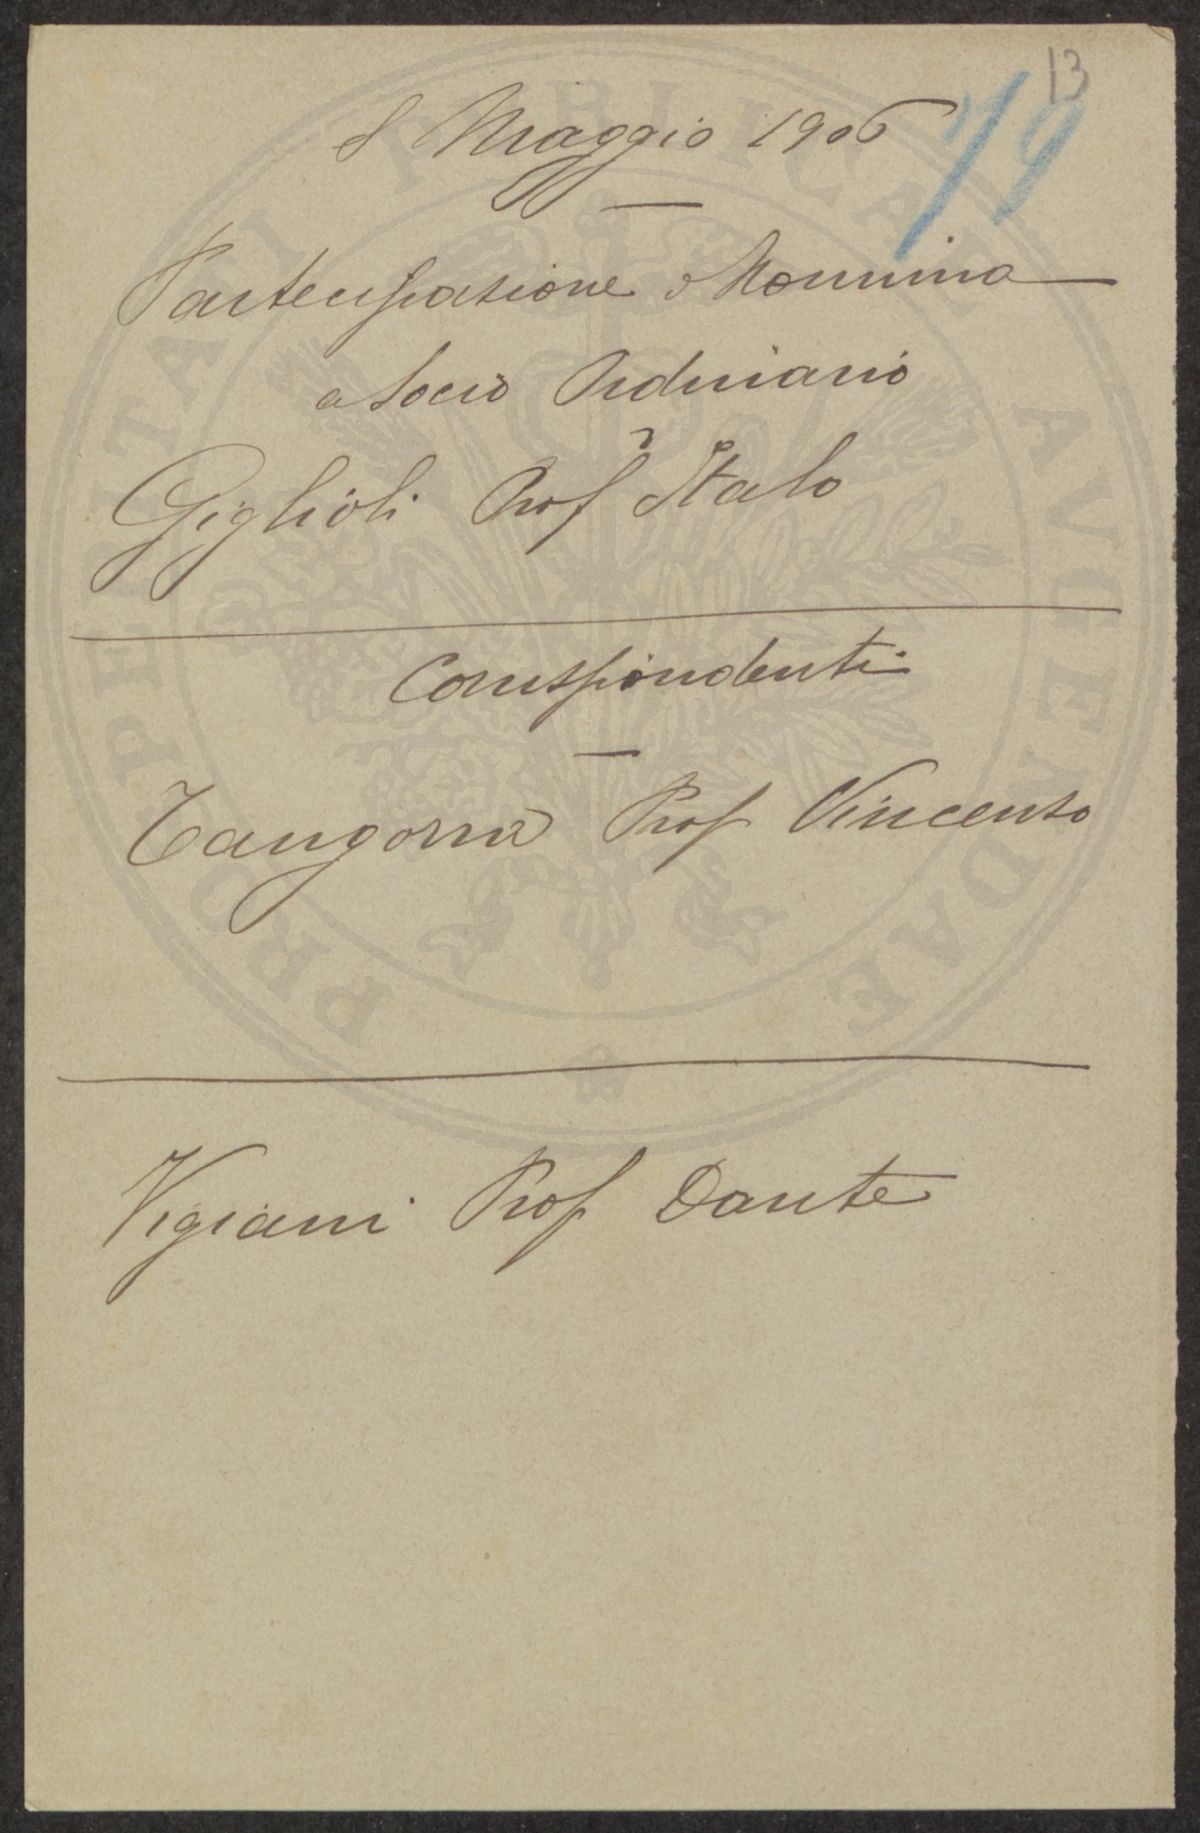 13
79
8 Maggio 1906
Partecipazione di Nomina
a Socio Ordinario
Giglioli Prof Italo
Corrispondenti
Tangorra Prof Vincenzo
Vigiani Prof Dante
PROSPERITATI PUBLICAE AVGENDAE